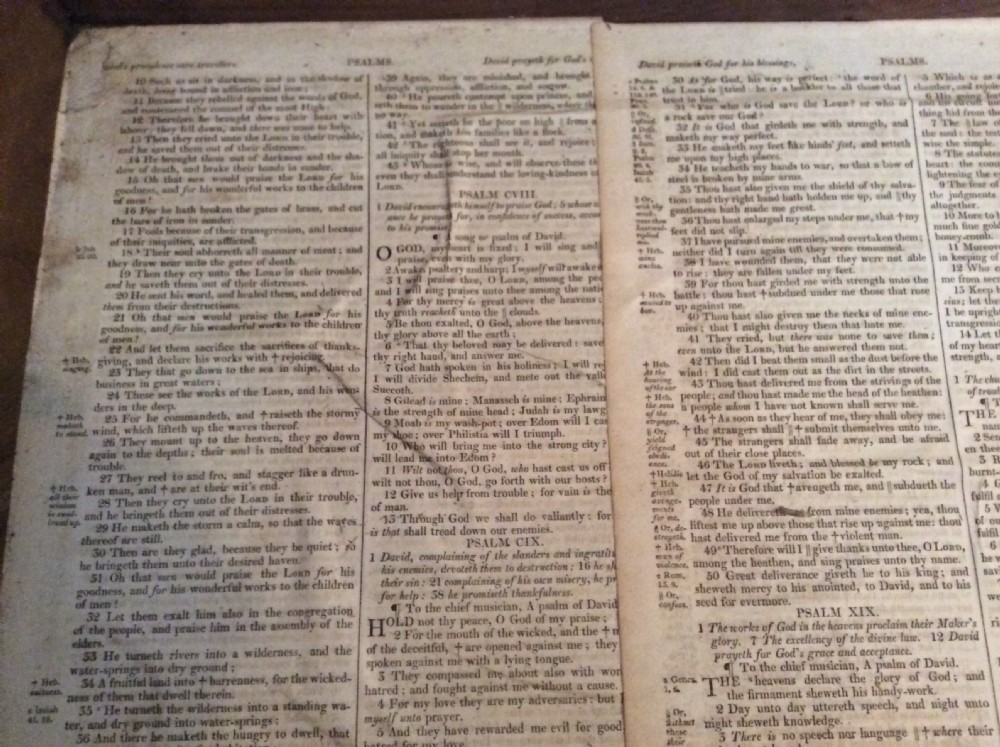 God's providence over travellers. PSALMS. David prayeth for God's
10 Such as sit in darkness, and in the shadow of
death, being bound in affliction and iron;
11 Because they rebelled against the words of God,
and contemned the counsel of the most High
12 Therefore he brought down their heart with
labour: they fell down, and there was none to help.
13 Then they cried unto the LORD in their trouble,
and he saved them out of their distresses.
14 He brought them out of darkness and the sha-
dow of death, and brake their bands in sunder.
15 Oh that men would praise the LORD for his
goodness, and for his wonderful works to the children
of men!
16 For he hath broken the gates of brass, and cut
the bars of iron in sunder.
17 Fools because of their transgression, and because
of their iniquities, are afflicted.
18 Their soul abhorreth all manner of meat; and
they draw near unto the gates of death.
19 Then they cry unto the LORD in their trouble,
and he saveth them out of their distresses.
20 He sent his word, and healed them, and delivered
them from their destructions.
21 Oh that men would praise the LORD for his
goodness, and for his wonderful works to the children
of men!
22 And let them sacrifice the sacrifices of thanks-
giving, and declare his works with † rejoicing.
23 They that go down to the sea in ships, that do
business in great waters;
24 These see the works of the LORD, and his won-
ders in the deep.
25 For he commandeth, and † raiseth the stormy
wind, which lifteth up the waves thereof.
26 They mount up to the heaven, they go down
again to the depths; their soul is melted because of
trouble.
27 They reel to and fro, and stagger like a drun-
ken man, and † are at their wit's end.
28 Then they cry unto the LORD in their trouble,
and he bringeth them out of their distresses.
29 He maketh the storm a calm, so that the waves
thereof are still.
30 Then are they glad, because they be quiet; so
he bringeth them unto their desired haven.
31 Oh that men would praise the LORD for his
goodness, and for his wonderful works to the children
of men!
32 Let them exalt him also in the congregation
of the people, and praise him in the assembly of the
elders.
33 He turneth rivers into a wilderness, and the
water-springs into dry ground;
34 A fruitful land into † barrenness, for the wicked-
ness of them that dwell therein.
35 He turneth the wilderness into a standing wa-
ter, and dry ground into water-springs:
36 And there he maketh the hungry to dwell, that
39 Again, they are minished, and brought
through oppression, affliction, and sorrow.
40 He poureth contempt upon princes, and
eth them to wander in the ‖ wilderness, where
no way.
41 Yet setteth he the poor on high ‖ from a
tion, and maketh him families like a flock.
42 The righteous shall see it, and rejoice:
all iniquity shall stop her mouth.
43 Whoso is wise, and will observe these
even they shall understand the loving-kindness
LORD.
PSALM CVIII.
1 David encourageth himself to praise God; 5 whose
ance he prayeth for, in confidence of success, acco
to his promise
¶ A song or psalm of David.
O GOD, my heart is fixed; I will sing and
praise, even with my glory.
2 Awake psaltery and harp; I myself will awake
3 I will praise thee, O LORD, among the peo
and I will sing praises unto thee among the natio
4 For thy mercy is great above the heavens:
thy truth reacheth unto the ‖ clouds.
5 Be thou exalted, O God, above the heavens,
thy glory above all the earth;
6 That thy beloved may be delivered: save
thy right hand, and answer me.
7 God hath spoken in his holiness; I will rej
I will divide Shechem, and mete out the vall
Succoth.
8 Gilead is mine; Manasseh is mine; Ephraim
is the strength of mine head; Judah is my lawg
9 Moab is my wash-pot; over Edom will I cas
my shoe; over Philistia will I triumph.
10 Who will bring me into the strong city?
will lead me into Edom?
11 Wilt not thou, O God, who hast cast us off
wilt not thou, O God, go forth with our hosts?
12 Give us help from trouble; for vain is the
of man.
13 Through God we shall do valiantly: for
is that shall tread down our enemies.
PSALM CIX.
1 David, complaining of the slanders and ingratit
his enemies, devoteth them to destruction: 16 he sh
their sin: 21 complaining of his own misery, he pr
for help: 38 he promiseth thankfulness.
¶ To the chief musician, A psalm of David
HOLD not thy peace, O God of my praise;
2 For the mouth of the wicked, and the † m
of the deceitful, † are opened against me; they
spoken against me with a lying tongue.
3 They compassed me about also with wor
hatred; and fought against me without a cause.
4 For my love they are my adversaries: but
myself unto prayer.
5 And they have rewarded me evil for good
hatred for my love.
David praiseth God for his blessings. PSALMS.
30 As for God, his way is perfect: the word of
the LORD is ‖ tried: he is a buckler to all those that
trust in him.
31 For who is God save the LORD? or who is
a rock save our God?
32 It is God that girdeth me with strength, and
maketh my way perfect.
33 He maketh my feet like hinds' feet, and setteth
me upon my high places.
34 He teacheth my hands to war, so that a bow of
steel is broken by mine arms.
35 Thou hast also given me the shield of thy salva-
tion: and thy right hand hath holden me up, and ‖ thy
gentleness hath made me great.
36 Thou hast enlarged my steps under me, that † my
feet did not slip.
37 I have pursued mine enemies, and overtaken them;
neither did I turn again till they were consumed.
38 I have wounded them, that they were not able
to rise: they are fallen under my feet.
39 For thou hast girded me with strength unto the
battle: thou hast † subdued under me those that rose
up against me.
40 Thou hast also given me the necks of mine ene-
mies; that I might destroy them that hate me.
41 They cried, but there was none to save them;
even unto the LORD, but he answered them not.
42 Then did I beat them small as the dust before the
wind: I did cast them out as the dirt in the streets.
43 Thou hast delivered me from the strivings of the
people; and thou hast made me the head of the heathen:
a people whom I have not known shall serve me.
44 † As soon as they hear of me, they shall obey me:
† the strangers shall ‖ † submit themselves unto me.
45 The strangers shall fade away, and be afraid
out of their close places.
46 The LORD liveth; and blessed be my rock; and
let the God of my salvation be exalted.
47 It is God that † avengeth me, and ‖ subdueth the
people under me.
48 He delivereth me from mine enemies; yea, thou
liftest me up above those that rise up against me: thou
hast delivered me from the † violent man.
49 Therefore will I ‖ give thanks unto thee, O LORD,
among the heathen, and sing praises unto thy name.
50 Great deliverance giveth he to his king; and
sheweth mercy to his anointed, to David, and to his
seed for evermore.
PSALM XIX.
1 The works of God in the heavens proclaim their Maker's
glory. 7 The excellency of the divine law. 12 David
prayeth for God's grace and acceptance.
¶ To the chief musician, A psalm of David.
THE heavens declare the glory of God; and
the firmament sheweth his handy-work.
2 Day unto day uttereth speech, and night unto
night sheweth knowledge.
3 There is no speech nor language ‖ † where their